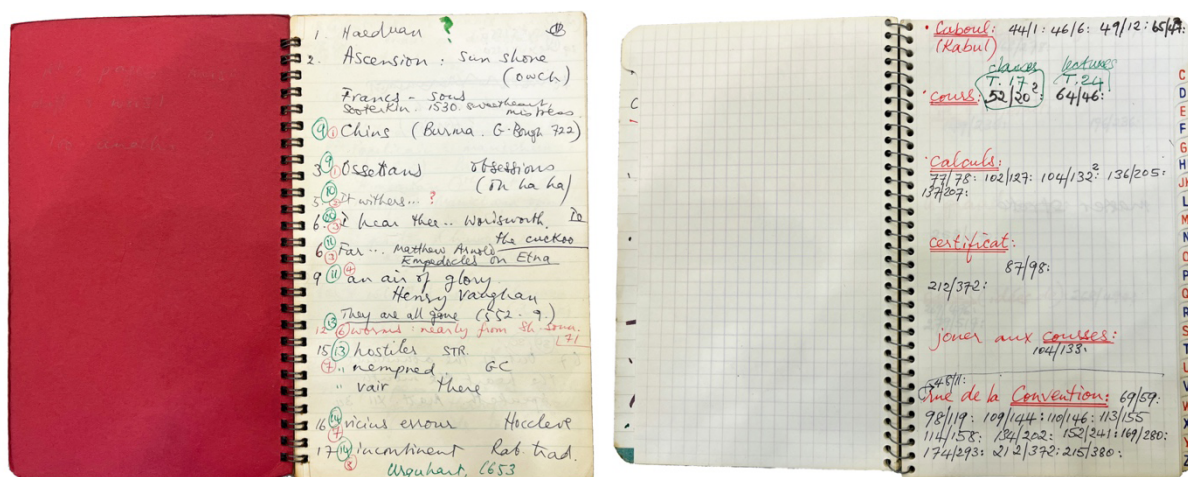 1. Haeduan ?
2. Ascension : sun shone
(owch)
Francs - sous
Sooterkin. 1530. sweetheart
mistress
9 1 Chins (Burma. G. Bough 722)
9
3 1 Ossetians obsessions
(oh ha ha)
10
5 2 It withers...?
6. 20 3 I hear thee.. Wordsworth. To
the cuckoo
11
6 3 Far... Matthew Arnold
Empedocles on Etna
9 11 4 an air of glory
Henry Vaughan
They are all gone (552. 9.)
13
12 6 worms : nearly from Sh. sonn.
71
15 13 hostiler STR.
7 " nempned GC
" vair There
16 14 vicius errour Hoccleve
7
17 14 incontinent Rab. trad.
8
Urquhart, 1653
• Caboul: 44/1: 46/6: 49/12: 65/47:
(Kabul)
classes lectures
T. 17 T. 24
• cours: 52/20²: 64/46:
• calculs:
77/78: 102/127: 104/132²: 136/205:
137/207:
certificat:
87/98:
212/372:
jouer aux courses:
104/133:
48/11:
rue de la Convention: 69/59:
98/119: 109/144: 110/146: 113/155
114/158: 134/202: 152/241: 169/280:
174/293: 212/372: 215/380:
C
D
E
F
G
H
JK
L
M
N
O
P
Q
R
S
T
U
V
W
X
Y
Z